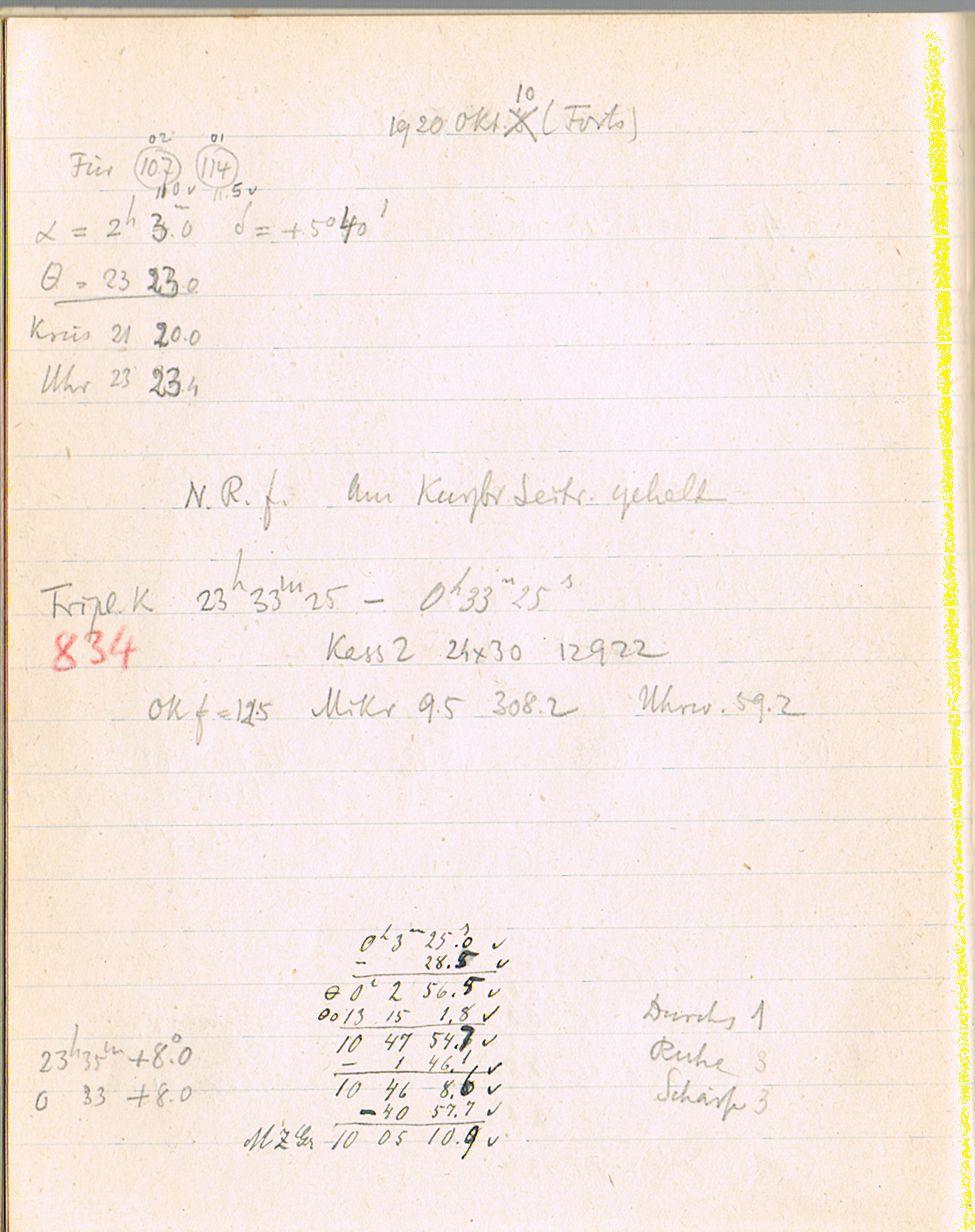 10
1920 Okt. 8 (Forts)
02 01
Für 107 114
11.0 ✓ 11.5 ✓
α = 2ʰ 3.ᵐ0 δ = +5°40'
θ = 23 23.0
Kreis 21 20.0
Uhr 23 23.4
N. R. f. am
Tripl. K 23ʰ33ᵐ25 – 0ʰ33ᵐ25ˢ
834
Kass 2 24x30 12922
Ok f = 125 Mikr 9.5 308.2 Uhrw. 59.2
0ʰ 3ᵐ 25.ˢ0 ✓
– 28.5 ✓
θ 0ʰ 2 56.5 ✓
θ0 13 15 1.8 ✓
10 47 54.7 ✓
– 1 46.1 ✓
10 46 8.6 ✓
–40 57.7 ✓
MZGr 10 05 10.9 ✓
23ʰ35ᵐ +8.°0
0 33 +8.0
Durchs 1
Ruhe 3
Schärfe 3